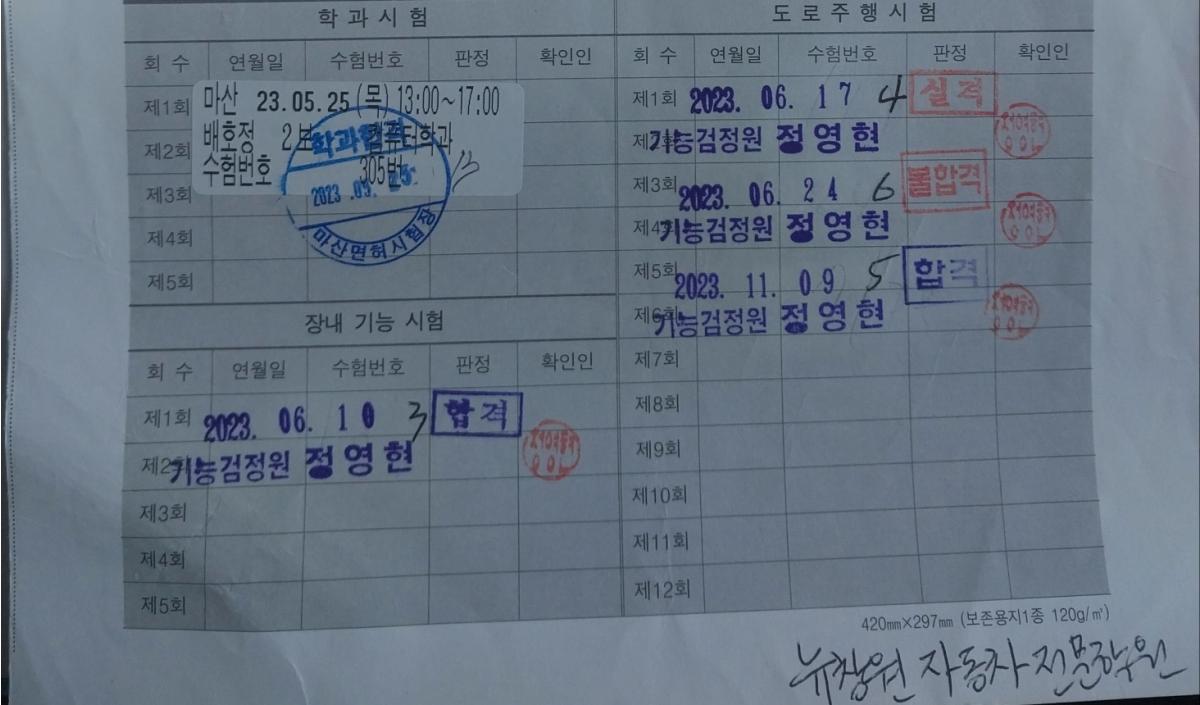 학과시험
회 수 연월일 수험번호 판정 확인인
제1회
마산 23.05.25 (목) 13:00~17:00
제2회
배호정 2보 컴퓨터학과
수험번호 305번
학과합격
2023 .05. 25.
마산면허시험장
13
제3회
제4회
제5회
장내 기능 시험
회 수 연월일 수험번호 판정 확인인
제1회 2023. 06. 10 3 합격
제2회 기능검정원 정영현
제3회
제4회
제5회
도로주행시험
회 수 연월일 수험번호 판정 확인인
제1회 2023. 06. 17 4 실격
기능검정원 정영현
제3회 2023. 06. 24 6 불합격
제4회 기능검정원 정영현
제5회 2023. 11. 09 5 합격
제6회 기능검정원 정영현
제7회
제8회
제9회
제10회
제11회
제12회
420㎜×297㎜ (보존용지1종 120g/㎡)
뉴창원 자동차 전문학원